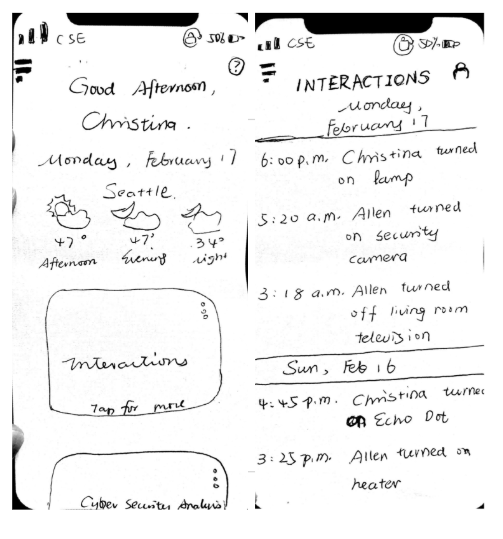 CSE 50%
?
Good Afternoon,
Christina.
Monday, February 17
Seattle.
47° 47° 34°
Afternoon Evening night
Interactions
Tap for more
Cyber Security Analysis
CSE 50%
INTERACTIONS
Monday,
February 17
6:00 p.m. Christina turned
on lamp
5:20 a.m. Allen turned
on security
camera
3:18 a.m. Allen turned
off living room
television
Sun, Feb 16
4:45 p.m. Christina turned
on Echo Dot
3:25 p.m. Allen turned on
heater